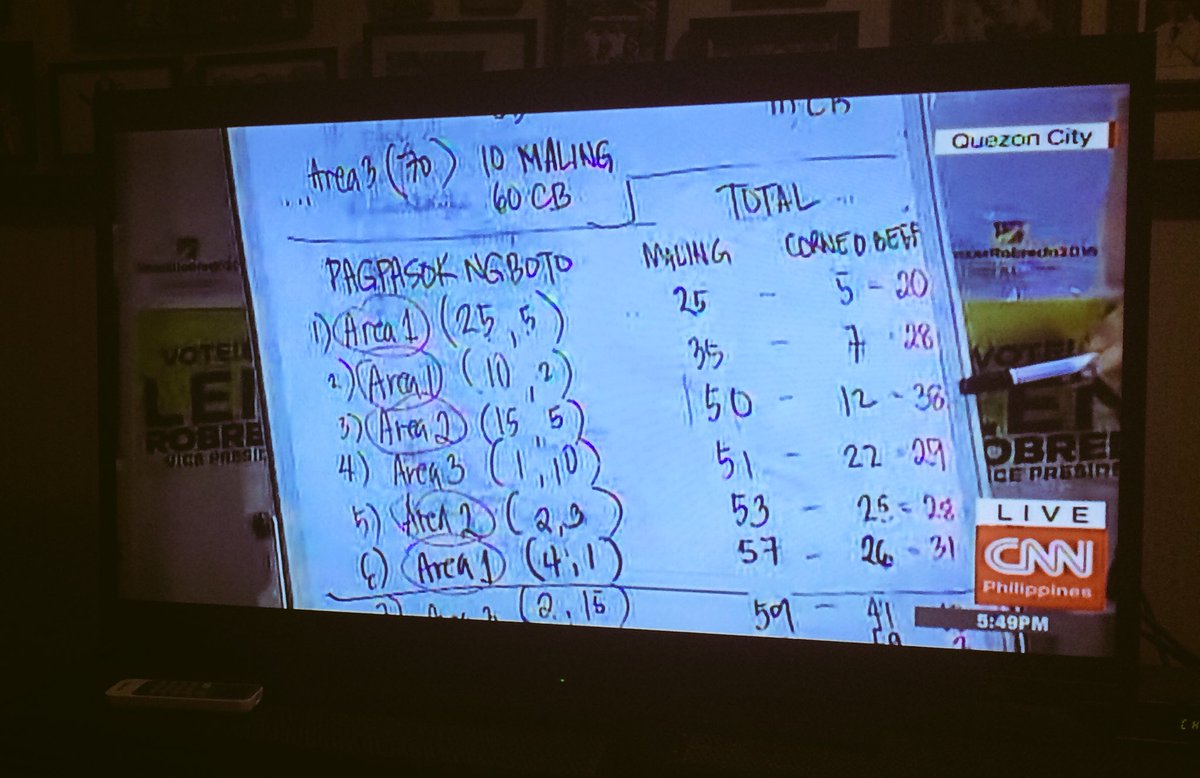 III CB
Quezon City
Area 3 (70) 10 MALING
60 CB
TOTAL
PAGPASOK NG BOTO MALING CORNED BEEF
1) Area 1 (25, 5) 25 - 5 - 20
2) Area 1 (10, 2) 35 - 7 - 28
3) Area 2 (15, 5) 50 - 12 - 38
4) Area 3 (1, 10) 51 - 22 - 29
5) Area 2 (2, 3) 53 - 25 - 28
6) Area 1 (4, 1) 57 - 26 - 31
(2, 15) 59 - 41
VOTE
LEN
ROBRE
VICE PRESID
VOTE
EN
OBRE
ICE PRESIDE
LIVE
CNN
Philippines
5:49PM